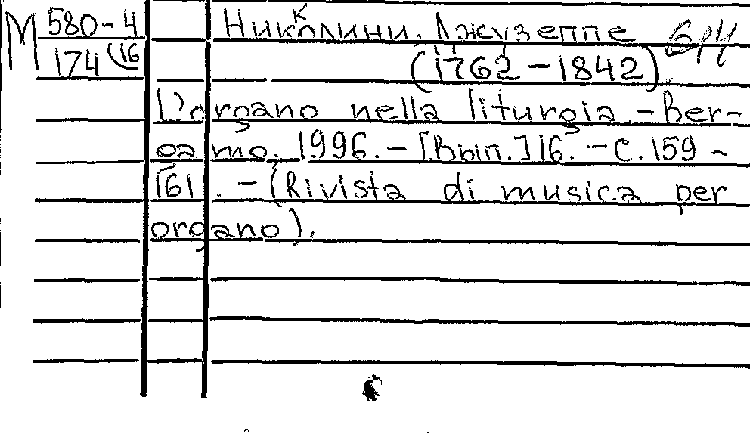 М 580-4 Николини, Джузеппе
174 (16 (1762-1842).
L'organo nella liturgia. - Ber-
gamo, 1996. - [Вып.] 16. - С. 159 -
161. - (Rivista di musica per
organo).